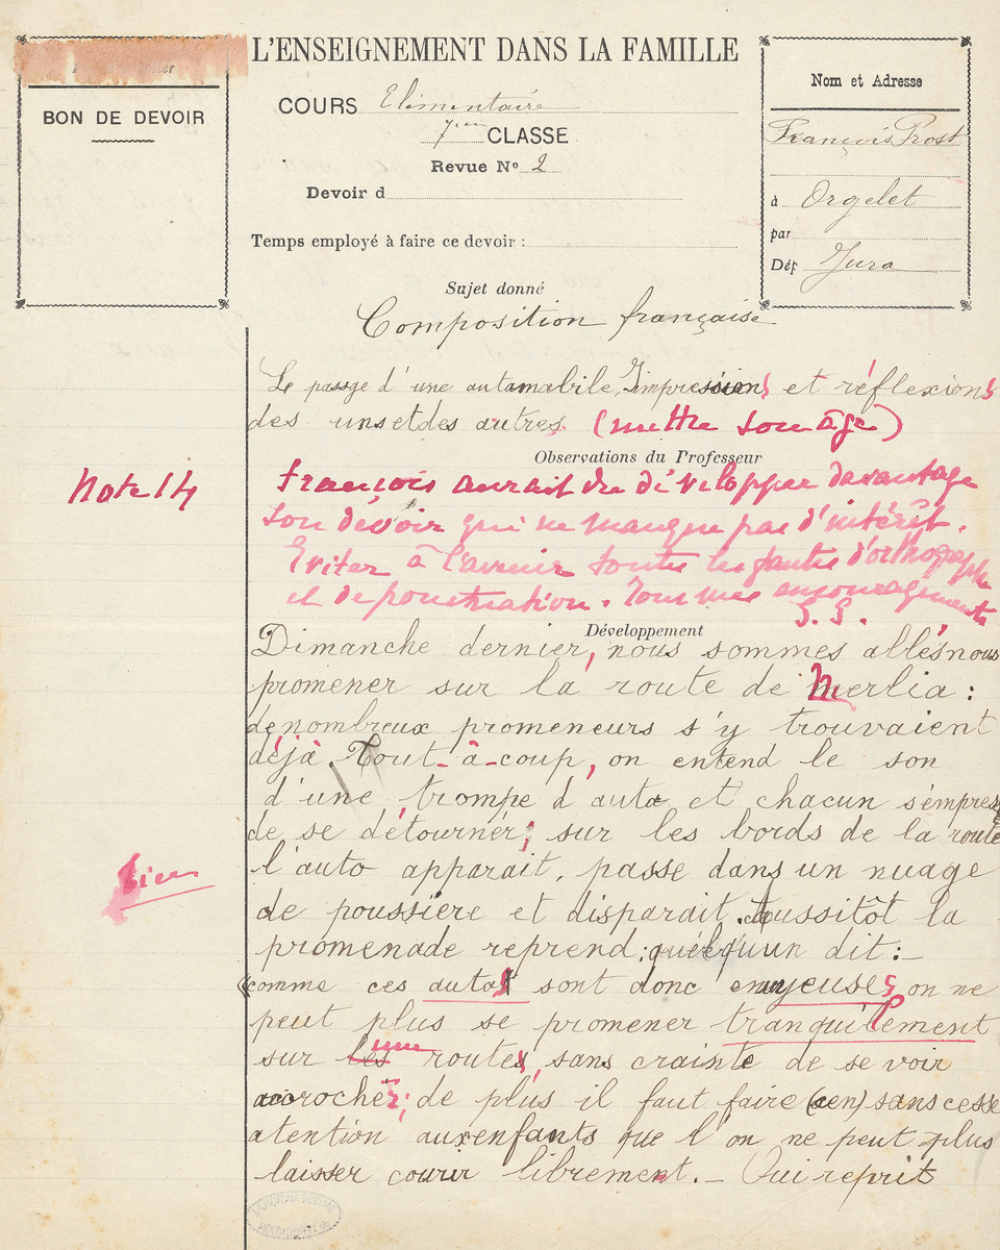 L'ENSEIGNEMENT DANS LA FAMILLE
BON DE DEVOIR
COURS Elémentaire
7ème CLASSE
Revue No 2
Devoir d
Temps employé à faire ce devoir :
Nom et Adresse
François Prost
à Orgelet
par
Dép Jura
Sujet donné
Composition française
Le passge d'une automobile, Impressions et réflexions
des uns et des autres (mettre son âge)
Observations du Professeur
Note 14
François aurait du développer davantage
son devoir qui ne manque pas d'intérêt.
Eviter à l'avenir toutes les fautes d'orthographe
et de ponctuation. Tous mes encouragements
S. S.
Développement
Dimanche dernier, nous sommes allés nous
promener sur la route de Merlia :
de nombreux promeneurs s'y trouvaient
déjà. Tout-à-coup, on entend le son
d'une trompe d'auto et chacun s'empresse
de se détourner; sur les bords de la route
l'auto apparait, passe dans un nuage
Bien
de poussière et disparait. aussitôt la
promenade reprend ; quelqu'un dit : _
«comme ces autos sont donc ennyeuses, on ne
peut plus se promener tranquilement
sur les une routes, sans crainte de se voir
accrochés; de plus il faut faire (en) sans cesse
atention aux enfants que l'on ne peut plus
laisser courir librement. _ Oui reprit